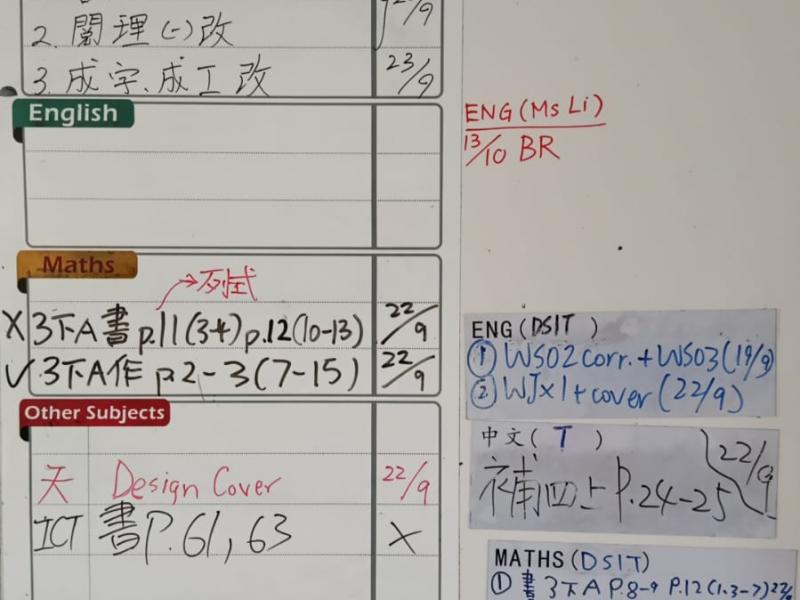 2. 閱理(一)改
3. 成字、成工改 23/9
English
Maths
→列式
X 3下A書 p.11(3-4) p.12(10-13) 22/9
✓ 3下A作 p.2-3(7-15) 22/9
Other Subjects
天 Design Cover 22/9
ICT 書P.61, 63 X
ENG (Ms Li)
13/10 BR
ENG (DSIT )
① WS02 corr. + WS03 (19/9)
② WJx1 + cover (22/9)
中文( T )
補四上 P.24-25 22/9
MATHS (DSIT)
① 書 3下A P.8-9 P.12 (1.3-7)